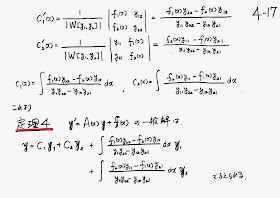 4-17
C₁'(x) = 1/|W[y₁,y₂]| | f₁(x) y₁₂ ; f₂(x) y₂₂ | = (f₁(x)y₂₂ − f₂(x)y₁₂)/(y₁₁y₂₂ − y₁₂y₂₁)
C₂'(x) = 1/|W[y₁,y₂]| | y₁₁ f₁(x) ; y₂₁ f₂(x) | = (f₂(x)y₁₁ − f₁(x)y₂₁)/(y₁₁y₂₂ − y₁₂y₂₁)
C₁(x) = ∫ (f₁(x)y₂₂ − f₂(x)y₁₂)/(y₁₁y₂₂ − y₁₂y₂₁) dx , C₂(x) = ∫ (f₂(x)y₁₁ − f₁(x)y₂₁)/(y₁₁y₂₂ − y₁₂y₂₁) dx
これより
定理4 y' = A(x)y + f(x) の一般解は
y = C₁y₁ + C₂y₂ + ∫ (f₁(x)y₂₂ − f₂(x)y₁₂)/(y₁₁y₂₂ − y₁₂y₂₁) dx y₁
+ ∫ (f₂(x)y₁₁ − f₁(x)y₂₁)/(y₁₁y₂₂ − y₁₂y₂₁) dx y₂ で与えられる